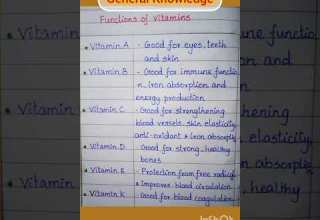 General Knowledge
Functions of Vitamins
• Vitamin A - Good for eyes, teeth
and skin
• Vitamin B - Good for immune functio
n, Iron absorption and
energy production
• Vitamin C - Good for strengthening
blood vessels, skin elasticity,
anti-oxidant & iron absorptio
• Vitamin D - Good for strong, healthy
bones
• Vitamin E - Protection from free radical
& Improves blood circulation
• Vitamin K - Good for blood coagulation
• Vitamin
• Vitamin
• Vitamin
une function
on and
n
hening
elasticity,
absorptio
, healthy